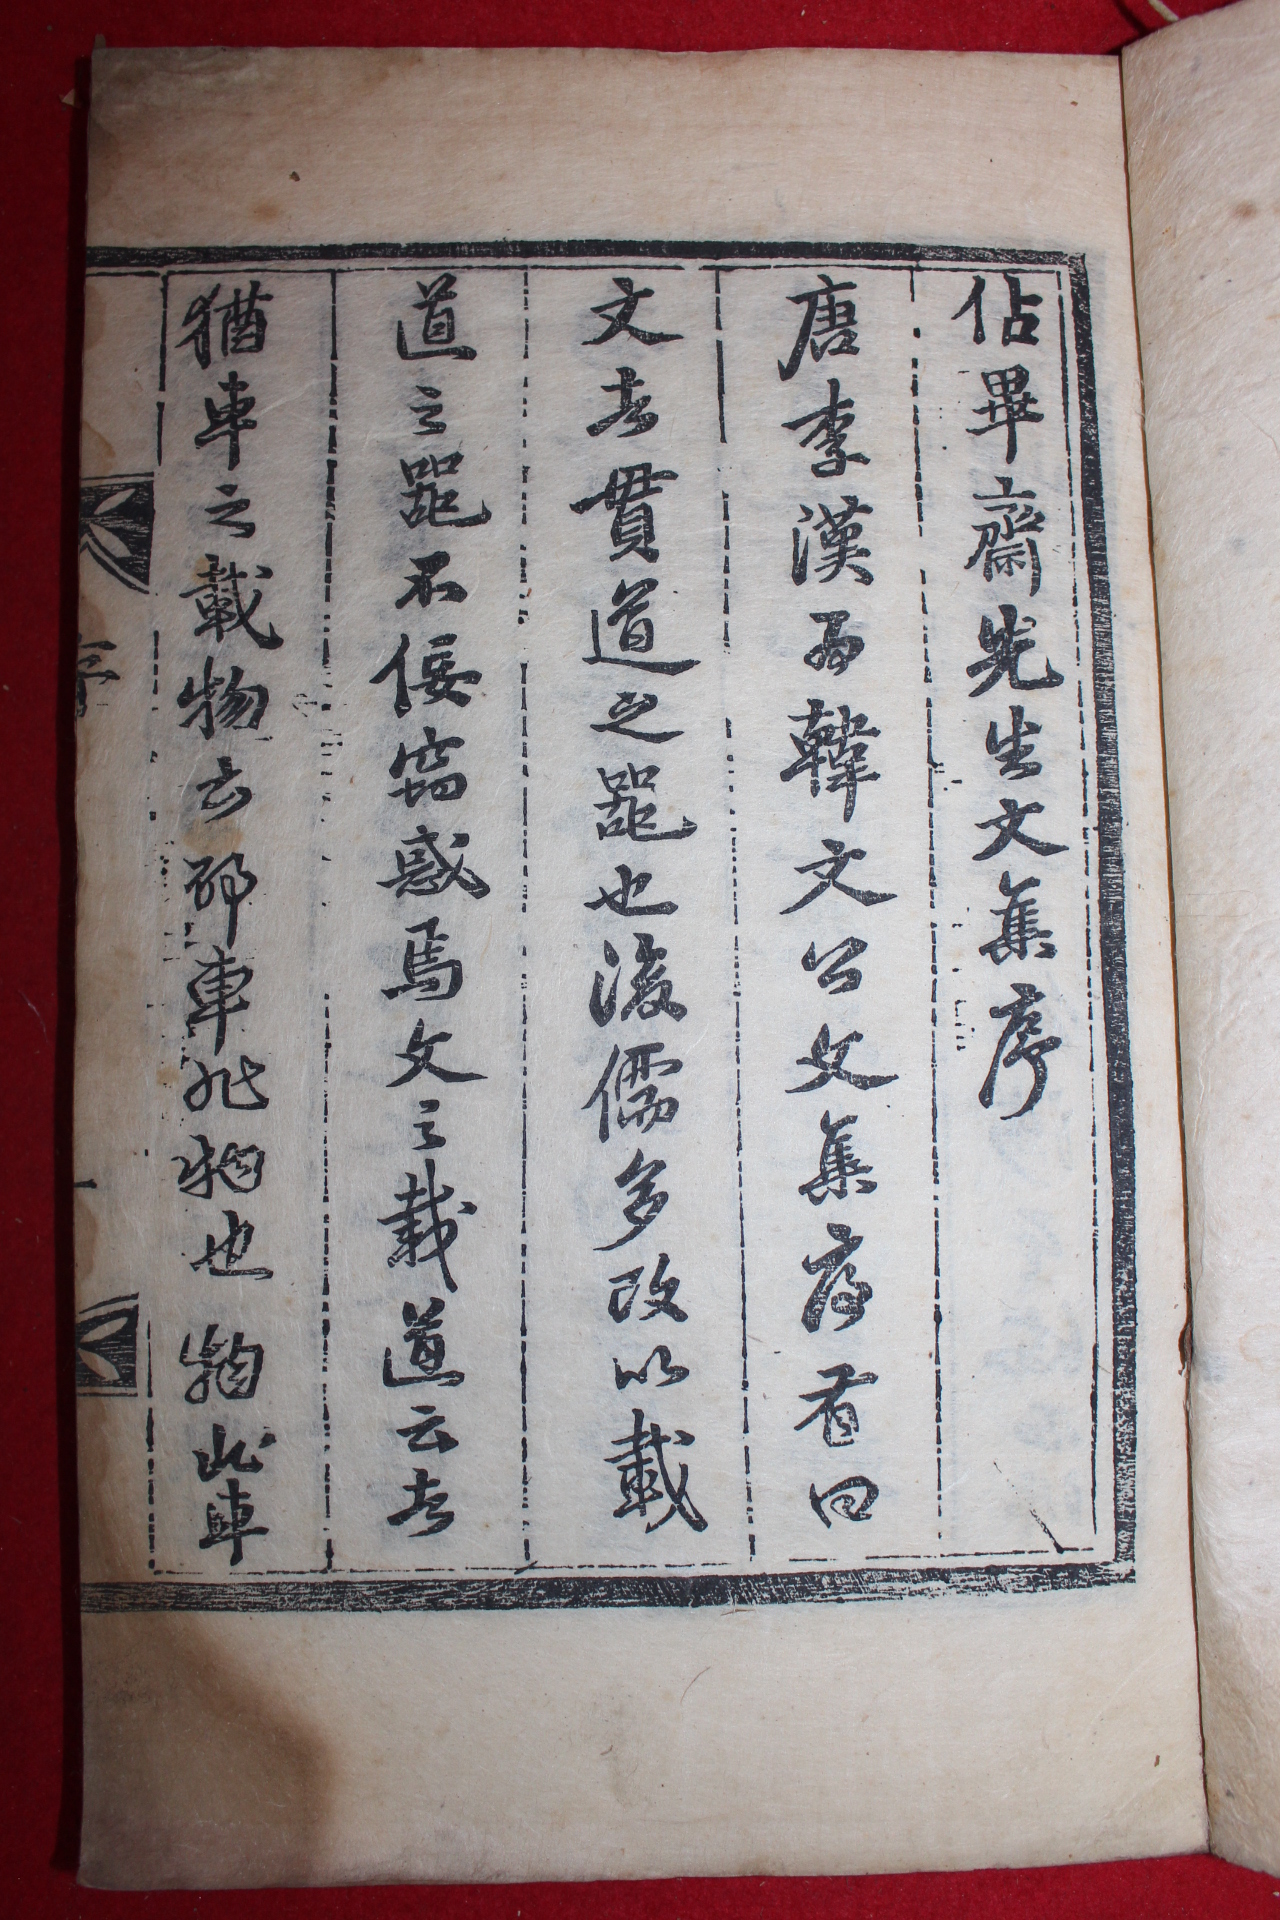 佔畢齋先生文集序
唐李漢為韓文公文集序首曰
文者貫道之器也後儒多改以載
道之器不佞竊惑焉文之載道云者
猶車之載物云耶車非物也物非車
序
一